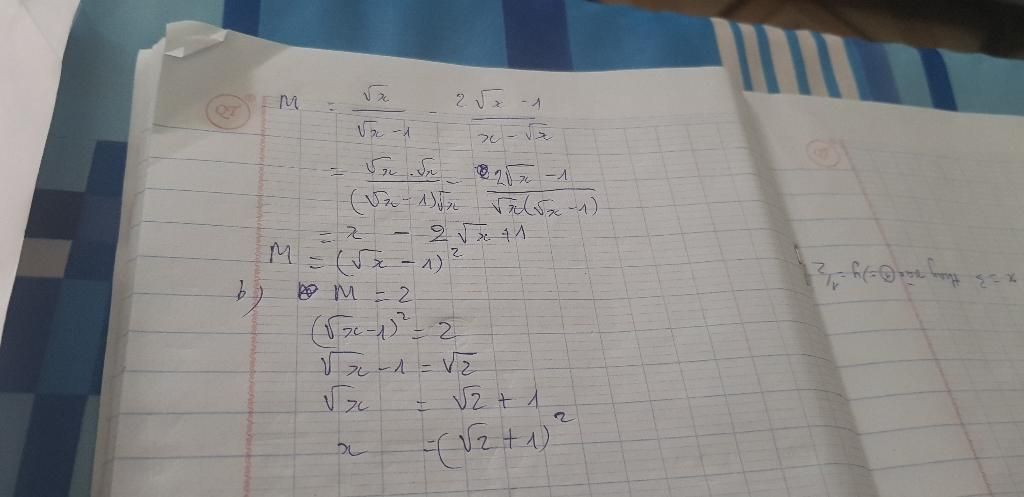 M = √x/(√x - 1) - (2√x - 1)/(x - √x)
= (√x . √x)/((√x - 1)√x) - (2√x - 1)/(√x(√x - 1))
= x - 2√x + 1
M = (√x - 1)²
b) M = 2
(√x - 1)² = 2
√x - 1 = √2
√x = √2 + 1
x = (√2 + 1)²
x = 3 thay vào ⇒ y = 1/2